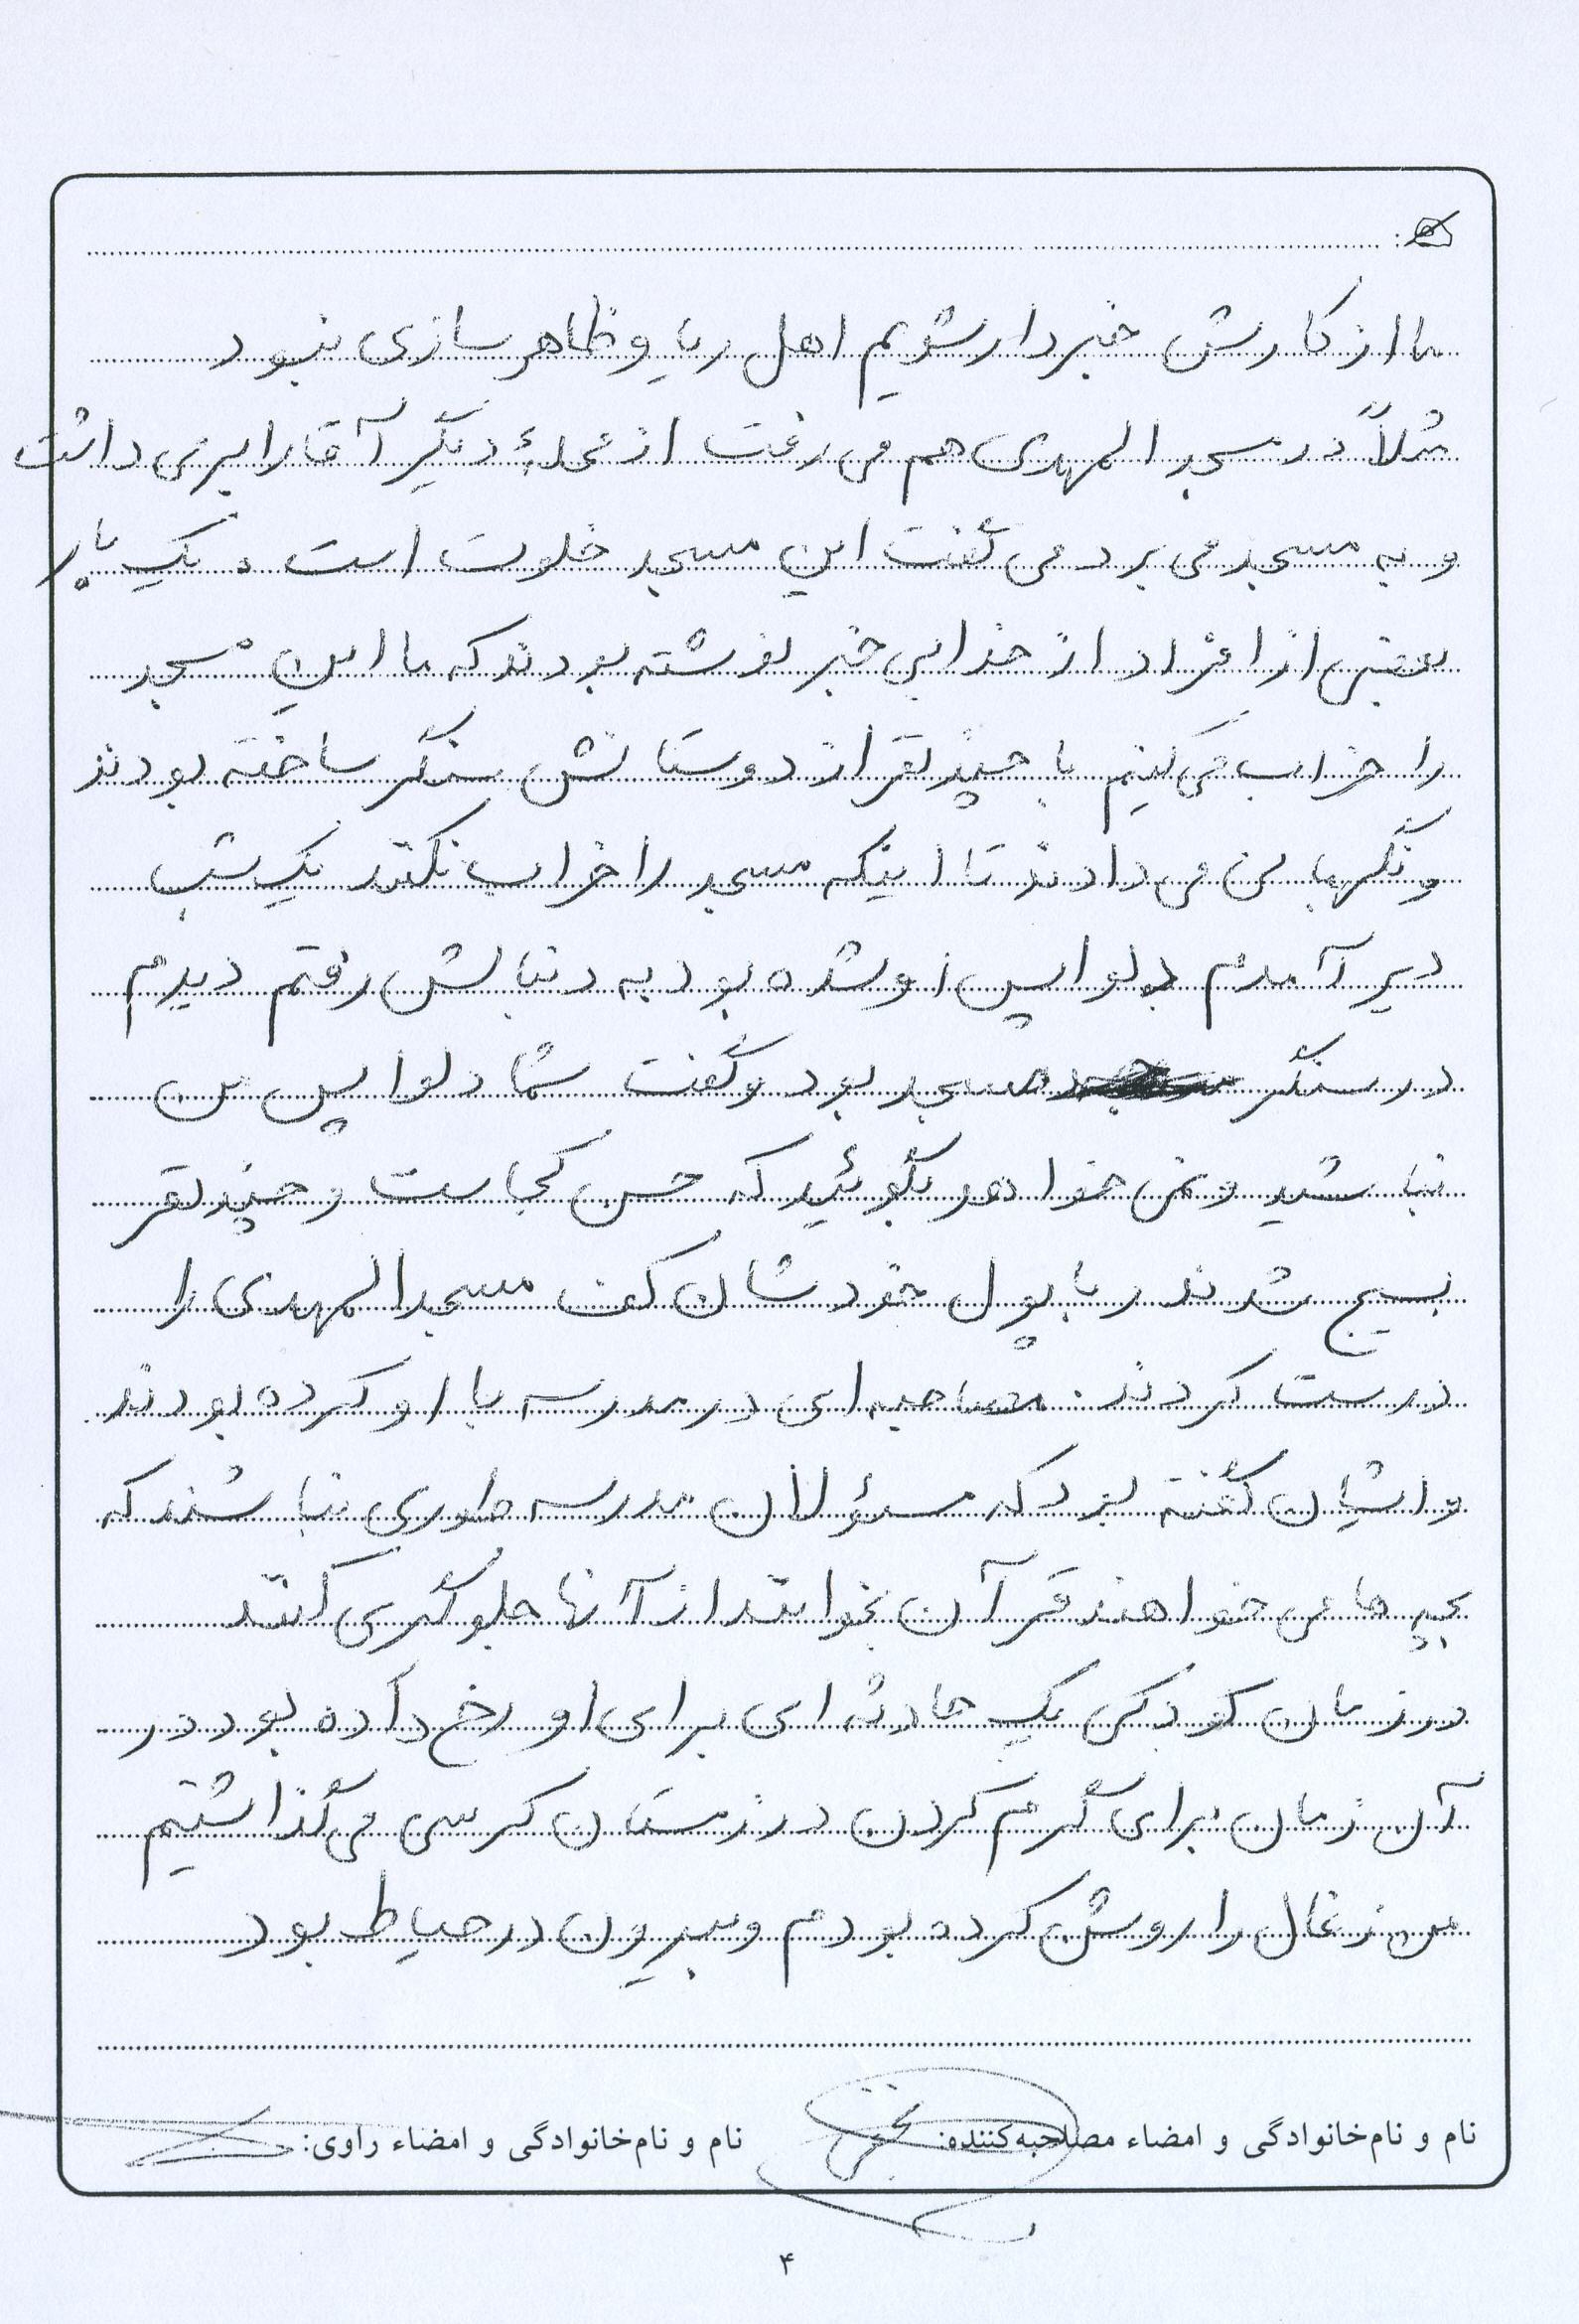 ما از کارش خبردار شویم اهل ریا و ظاهر سازی نبود
مثلاً در مسجد المهدی هم می رفت از محلهٔ دیگر آقا را بر می داشت
و به مسجد می برد می گفت این مسجد خلوت است . یک بار
بعضی از افراد از خدایی خبر نوشته بودند که ما این مسجد
را خراب می کنیم با چند نفر از دوستانش سنگر ساخته بودند
و نگهبانی می دادند تا اینکه مسجد را خراب نکنند یک شب
دیر آمدم دلواپس او شده بود به دنبالش رفتم دیدم
در سنگر مسجد بود و گفت شما دلواپس من
نباشید و نمی خواهد بگوئید که حسن کجاست و چند نفر
بسیج شدند و با پول خودشان کف مسجد المهدی را
درست کردند . مصاحبه ای در مدرسه با او کرده بودند
و ایشان گفته بود که مسئولان مدرسه طوری نباشند که
بچه ها می خواهند قرآن بخوانند از آنها جلوگیری کنند
در زمان کودکی یک حادثه ای برای او رخ داده بود در
آن زمان برای گرم کردن در زمستان کرسی می گذاشتیم
من زغال را روشن کرده بودم و بیرون در حیاط بود
نام و نام‌خانوادگی و امضاء مصاحبه‌کننده:
نام و نام‌خانوادگی و امضاء راوی:
۴